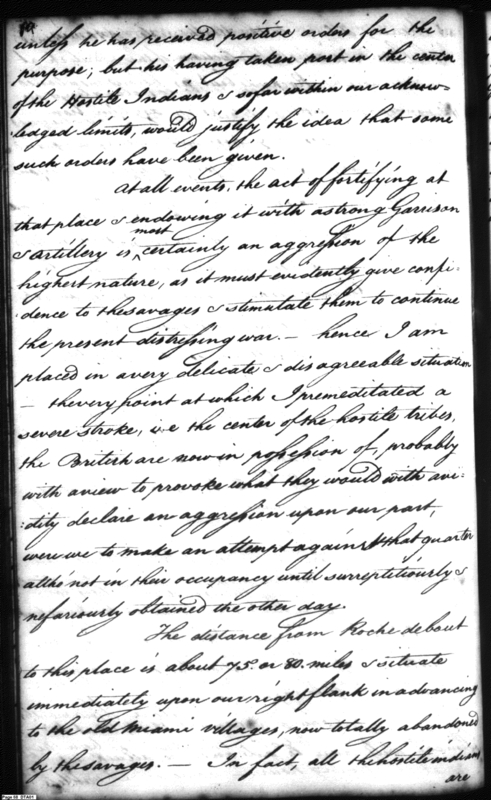 unless he has received positive orders for the
purpose; but his having taken post in the center
of the Hostile Indians & so far within our acknow-
ledged limits, would justify the idea that some
such orders have been given.
At all events, the act of fortifying at
that place & endowing it with a strong Garrison
& artillery is most certainly an aggression of the
highest nature, as it must evidently give confi-
dence to the savages & stimulate them to continue
the present distressing war. — hence I am
placed in a very delicate & disagreeable situation
— the very point at which I premeditated a
severe stroke, i.e. the center of the hostile tribes,
the British are now in possession of, probably
with a view to provoke what they would with avi-
dity declare an aggression upon our part,
were we to make an attempt against that quarter
altho' not in their occupancy until surreptitiously &
nefariously obtained the other day.
The distance from Roche debout
to this place is about 75. or 80. miles & situate
immediately upon our right flank in advancing
to the old Miami villages, now totally abandoned
by the savages. — In fact, all the hostile indians
are